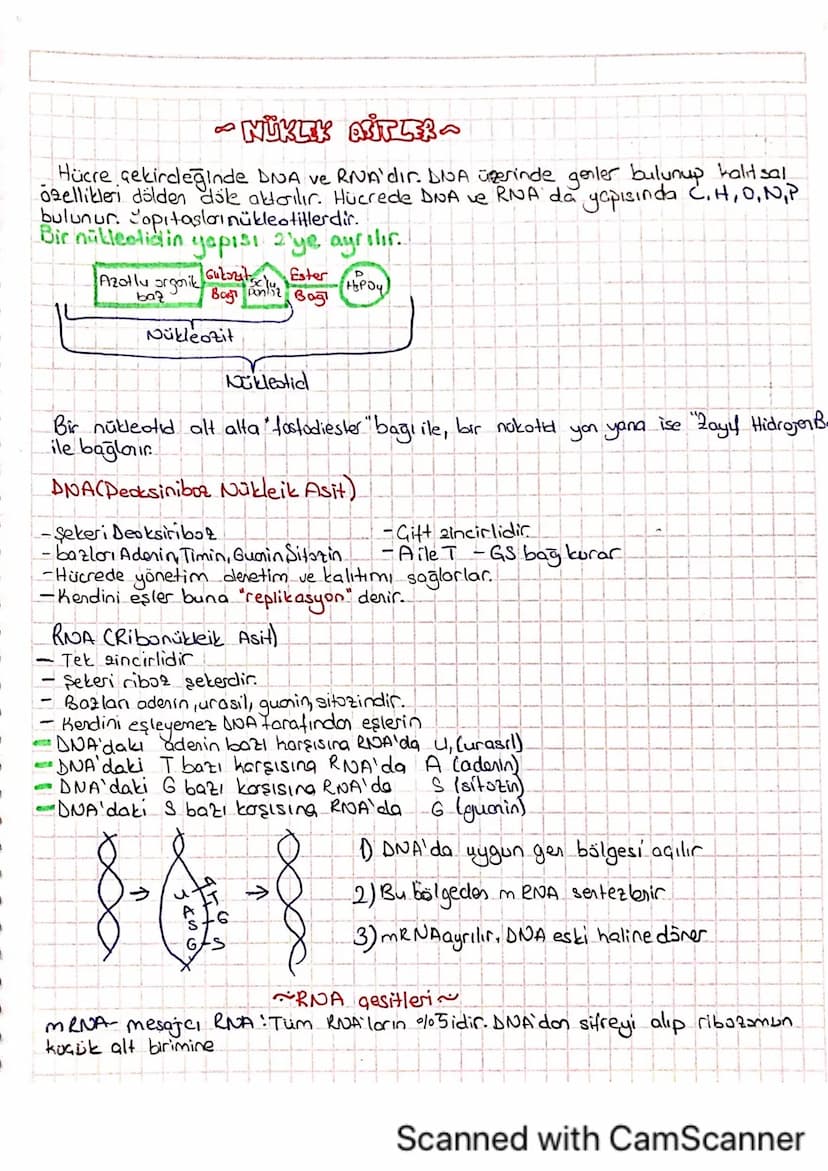 ~ NÜKLEK ASİTLER ~
Hücre çekirdeğinde DNA ve RNA'dır. DNA üzerinde genler bulunup kalıtsal
özellikleri dölden döle aktarılır. Hücrede DNA ve RNA'da yapısında C, H, O, N, P
bulunur. Yapıtaşları nükleotillerdir.
Bir nükleotidin yapısı 2'ye ayrılır.
Azotlu organik baz
Bağı
Ester Bağı
H3PO4
Nükleozit
Nükleotid
Bir nükleotid alt alta "fosfodiester" bağı ile, bir nükotid yan yana ise "Zayıf Hidrojen B
ile bağlanır.
DNA (Deoksiniboz Nükleik Asit)
- Şekeri Deoksiriboz - Çift zincirlidir.
- bazları Adenin, Timin, Guanin Sitozin - A ile T - GS bağ kurar
- Hücrede yönetim denetim ve kalıtımı sağlarlar.
- Kendini eşler buna "replikasyon" denir.
RNA (Ribonükleik Asit)
- Tek zincirlidir
- Şekeri riboz şekerdir.
- Bazları adenin, urasil, guanin, sitozindir.
- Kendini eşleyemez DNA tarafından eşlenir
- DNA'daki adenin bazı karşısına RNA'da U, (urasil)
- DNA'daki T bazı karşısına RNA'da A (adenin)
- DNA'daki G bazı karşısına RNA'da S (sitozin)
- DNA'daki S bazı karşısına RNA'da G (guanin)
1) DNA'da uygun gen bölgesi açılır
2) Bu bölgeden mRNA sentezlenir
3) mRNA ayrılır, DNA eski haline döner
U A
A T
S G
G S
~ RNA çeşitleri ~
mRNA - mesajcı RNA: Tüm RNA'ların %5 idir. DNA'dan şifreyi alıp ribozomun
küçük alt birimine
Scanned with CamScanner